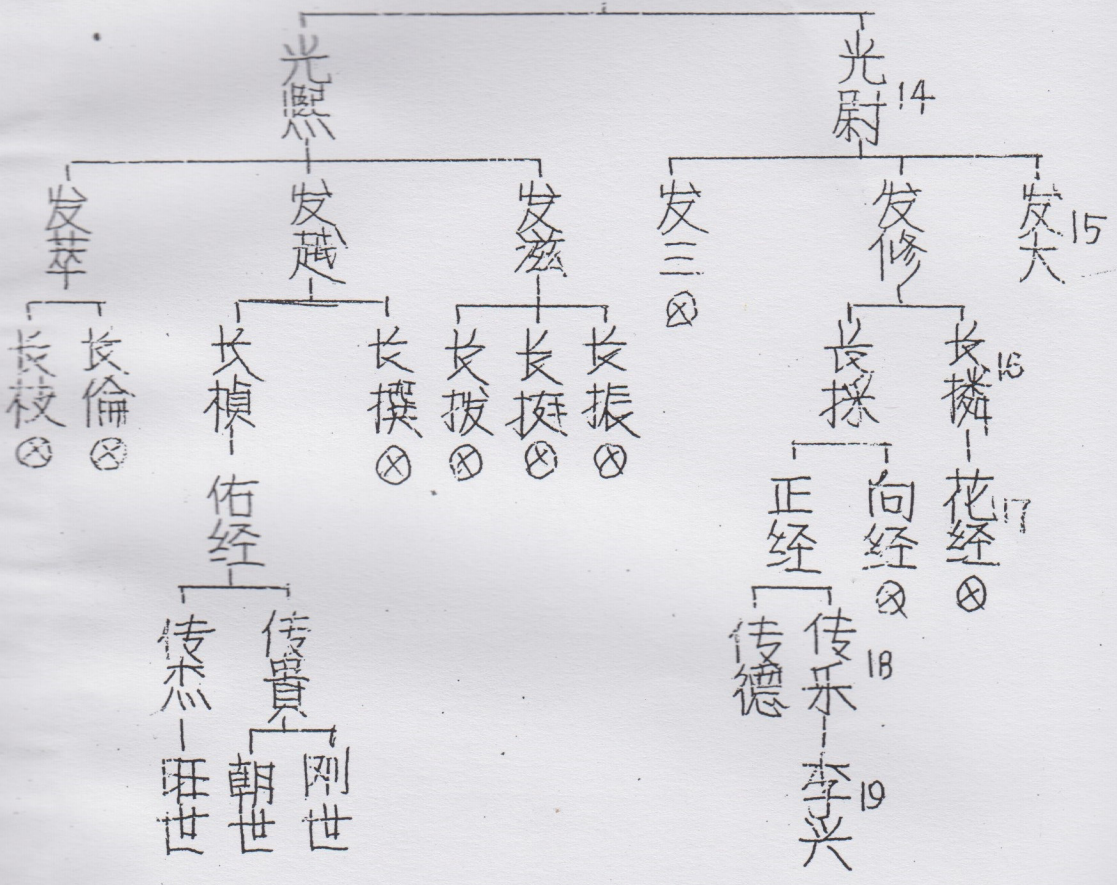 光熙
光尉 14
发萃
发越
发滋
发三 ⊗
发修
发大 15
长枝 ⊗
长倫 ⊗
长楨
长撰 ⊗
长拨 ⊗
长挺 ⊗
长振 ⊗
长採
长撛 16
佑经
正经
向经 ⊗
花经 ⊗ 17
传杰
传貴
传德
传乐 18
旺世
朝世
刚世
李兴 19